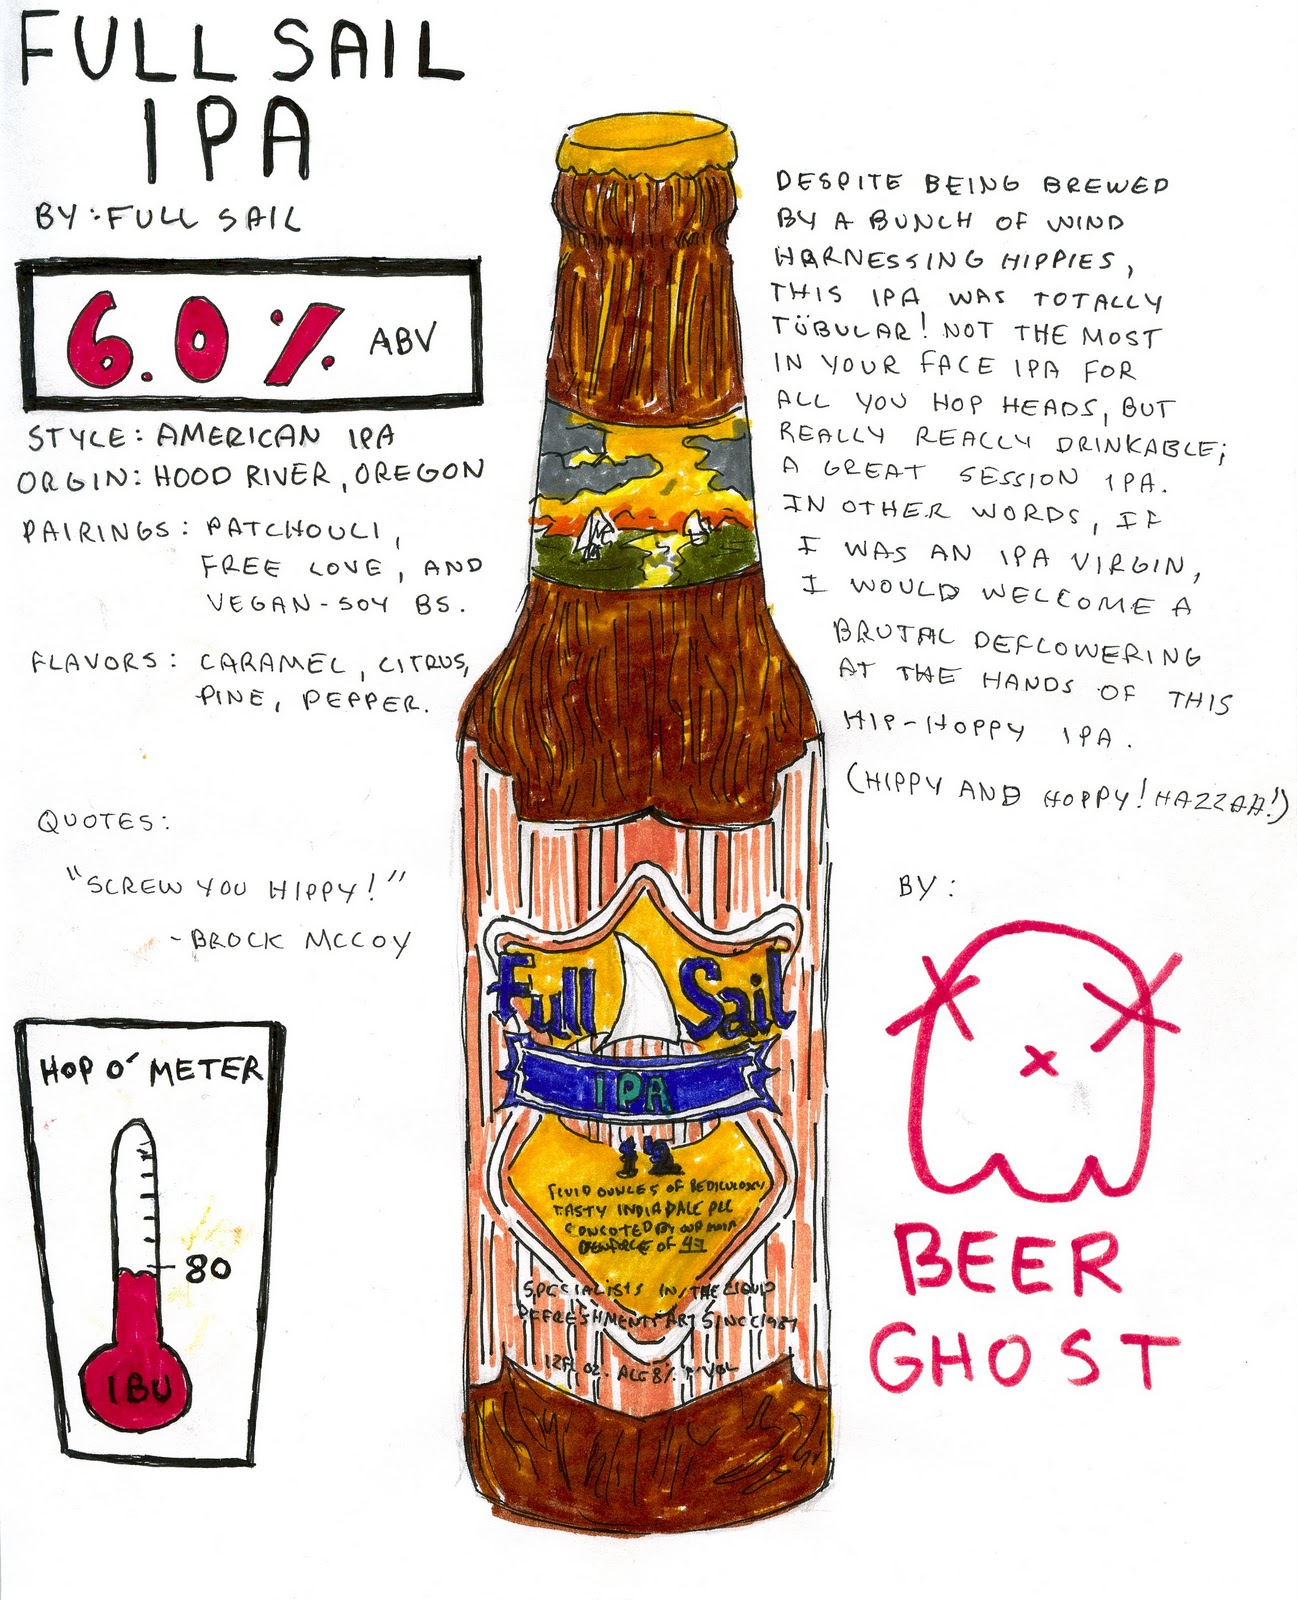 FULL SAIL
IPA
BY: FULL SAIL
6.0% ABV
STYLE: AMERICAN IPA
ORGIN: HOOD RIVER, OREGON
PAIRINGS: PATCHOULI,
FREE LOVE, AND
VEGAN-SOY BS.
FLAVORS: CARAMEL, CITRUS,
PINE, PEPPER.
QUOTES:
"SCREW YOU HIPPY!"
-BROCK MCCOY
HOP O' METER
80
IBU
DESPITE BEING BREWED
BY A BUNCH OF WIND
HARNESSING HIPPIES,
THIS IPA WAS TOTALLY
TÜBULAR! NOT THE MOST
IN YOUR FACE IPA FOR
ALL YOU HOP HEADS, BUT
REALLY REALLY DRINKABLE;
A GREAT SESSION IPA.
IN OTHER WORDS, IF
I WAS AN IPA VIRGIN,
I WOULD WELCOME A
BRUTAL DEFLOWERING
AT THE HANDS OF THIS
HIP-HOPPY IPA.
(HIPPY AND HOPPY! HAZZAH!)
BY:
BEER
GHOST
Full Sail
IPA
12
FLUID OUNCES OF
TASTY INDIA PALE
BY OUR
OF 47
SPECIALISTS IN THE LIQUID
REFRESHMENTS ART SINCE 1987
12 FL OZ. ALC 8% VOL